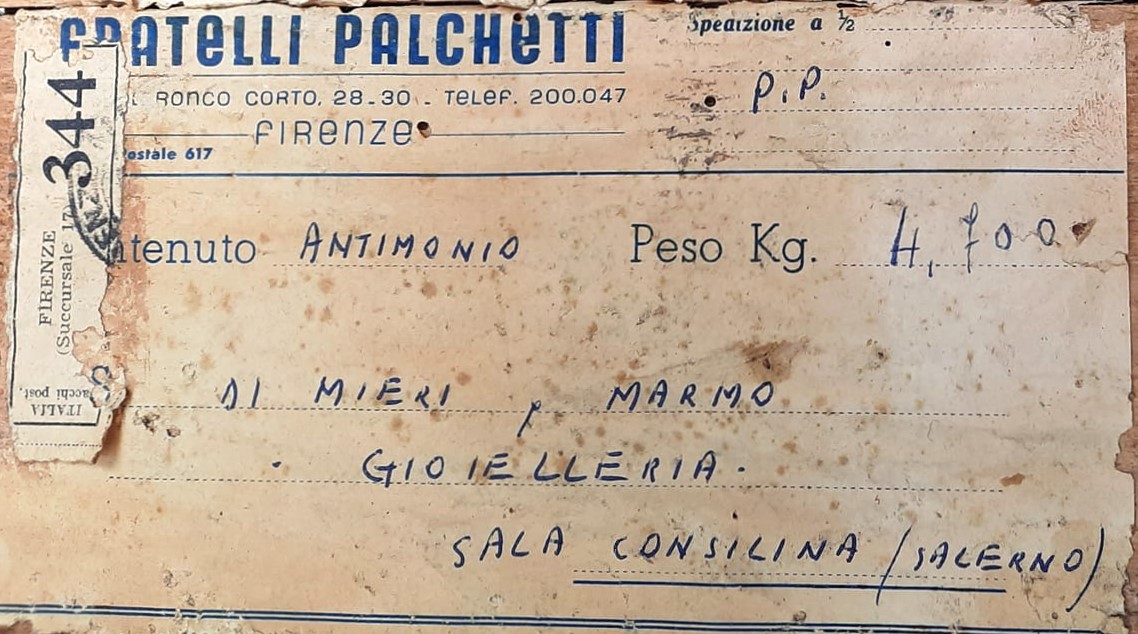 FRATELLI PALCHETTI
RONCO CORTO, 28-30 - TELEF. 200.047
FIRENZE
ostale 617
Spedizione a ½
P.P.
344
FIRENZE
(Succursale 17)
ITALIA
acchi post.
ntenuto ANTIMONIO Peso Kg. 4,700
DI MIERI , MARMO
. GIOIELLERIA .
SALA CONSILINA (SALERNO)